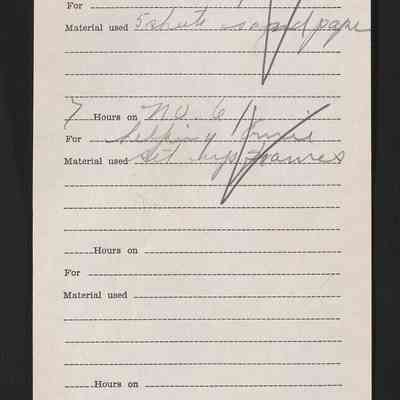 For
Material used 5 sheets sandpape
7 Hours on No. 6
For helping Ernie
Material used set up frames
Hours on
For
Material used
Hours on